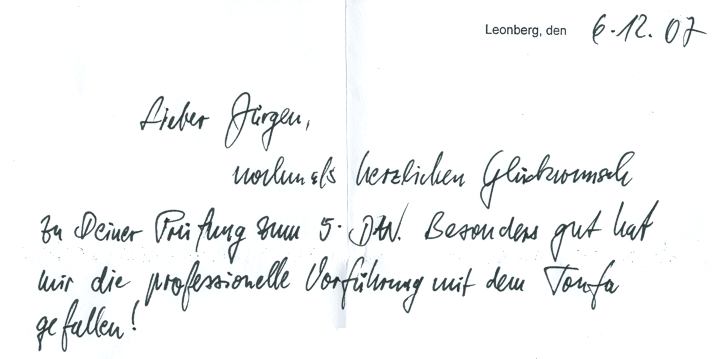 Leonberg, den 6.12.07
Lieber Jürgen,
nochmals herzlichen Glückwunsch
zu Deiner Prüfung zum 5. DAN. Besonders gut hat
mir die professionelle Vorführung mit dem Tonfa
gefallen!